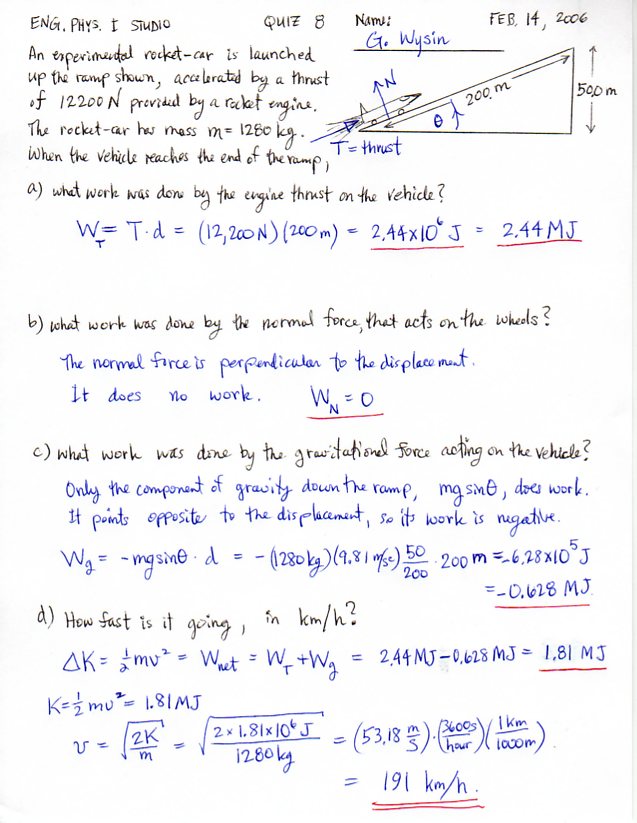 ENG. PHYS. I STUDIO QUIZ 8 Name: FEB. 14, 2006
G. Wysin
An experimental rocket-car is launched
up the ramp shown, accelerated by a thrust
of 12200 N provided by a rocket engine.
The rocket-car has mass m = 1280 kg.
When the vehicle reaches the end of the ramp,
N
200. m
50.0 m
θ
T = thrust
a) what work was done by the engine thrust on the vehicle?
W_T = T·d = (12,200 N)(200 m) = 2.44×10⁶ J = 2.44 MJ
b) what work was done by the normal force, that acts on the wheels?
The normal force is perpendicular to the displacement.
It does no work. W_N = 0
c) what work was done by the gravitational force acting on the vehicle?
Only the component of gravity down the ramp, mg sinθ, does work.
It points opposite to the displacement, so its work is negative.
W_g = -mg sinθ · d = -(1280 kg)(9.81 m/s²) 50/200 · 200 m = -6.28×10⁵ J
= -0.628 MJ.
d) How fast is it going, in km/h?
ΔK = ½mv² = W_net = W_T + W_g = 2.44 MJ - 0.628 MJ = 1.81 MJ
K = ½mv² = 1.81 MJ
v = √(2K/m) = √(2×1.81×10⁶ J/1280 kg) = (53.18 m/s)·(3600s/hour)(1km/1000m)
= 191 km/h.